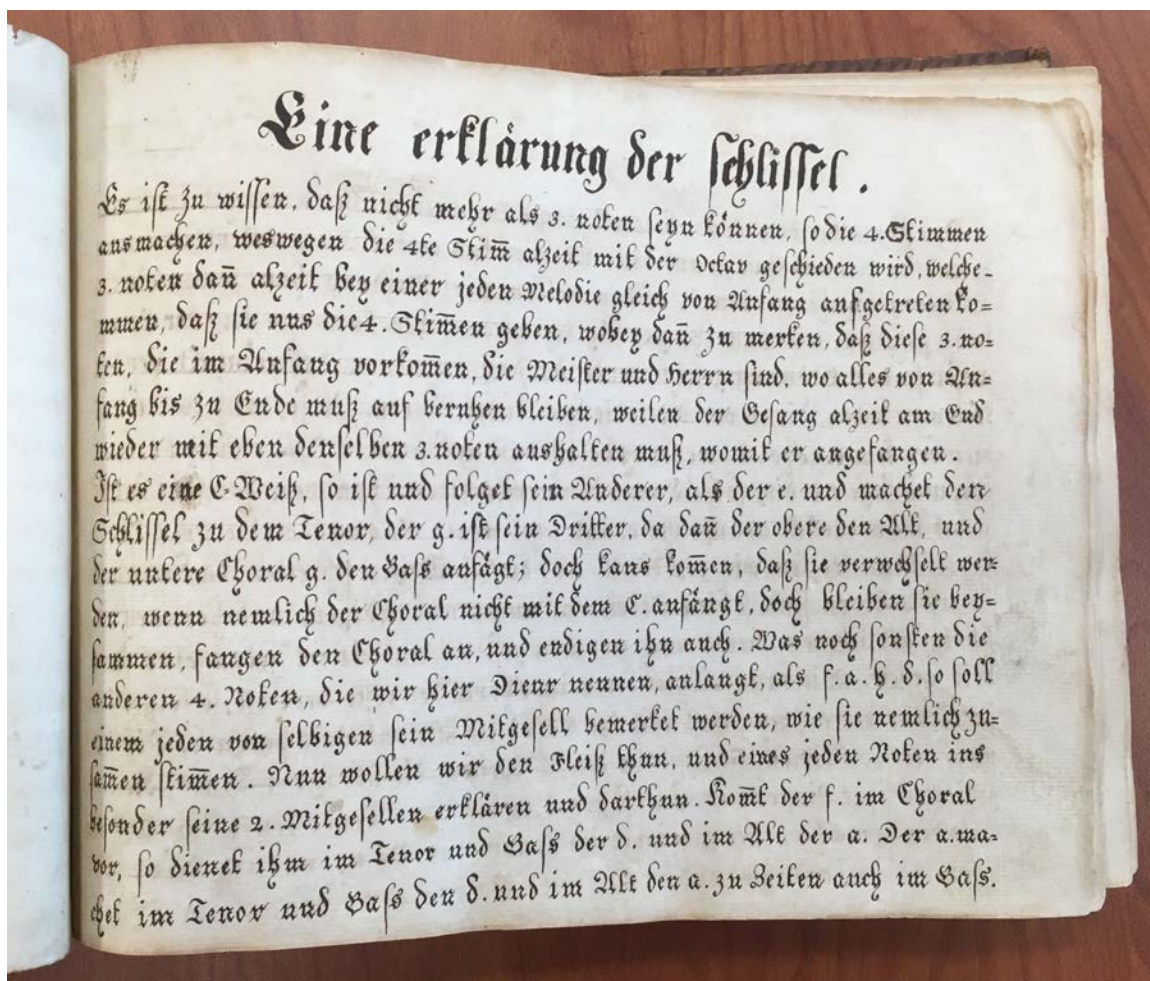 Eine erklärung der schlissel.
Es ist zu wissen, daß nicht mehr als 3. noten seyn können, so die 4. Stimmen
ausmachen, weswegen die 4te Stim̄ alzeit mit der Octav geschieden wird, welche-
3. noten dan̄ alzeit bey einer jeden Melodie gleich von Anfang aufgetreten ko=
mmen, daß sie uns die 4. Stim̄en geben, wobey dan̄ zu merken, daß diese 3. no=
ten, die im Anfang vorkom̄en, die Meister und Herrn sind, wo alles von An=
fang bis zu Ende muß auf beruhen bleiben, weilen der Gesang alzeit am End
wieder mit eben denselben 3. noten aushalten muß, womit er angefangen.
Ist es eine C-Weiß, so ist und folget sein Anderer, als der e. und machet den
Schlissel zu dem Tenor, der g. ist sein Dritter, da dan̄ der obere den Alt, und
der untere Choral g. den Bass anfägt; doch kans kom̄en, daß sie verwchselt wer=
den, wenn nemlich der Choral nicht mit dem C. anfängt, doch bleiben sie bey=
sammen, fangen den Choral an, und endigen ihn auch. Was noch sonsten die
anderen 4. Noten, die wir hier Dienr nennen, anlangt, als f. a. h. d. so soll
einem jeden von selbigen sein Mitgesell bemerket werden, wie sie nemlich zu=
sam̄en stim̄en. Nun wollen wir den Fleiß thun, und eines jeden Noten ins
besonder seine 2. Mitgesellen erklären und darthun. Kom̄t der f. im Choral
vor, so dienet ihm im Tenor und Bass der d. und im Alt der a. Der a. ma=
chet im Tenor und Bass den d. und im Alt den a. zu Zeiten auch im Bass.